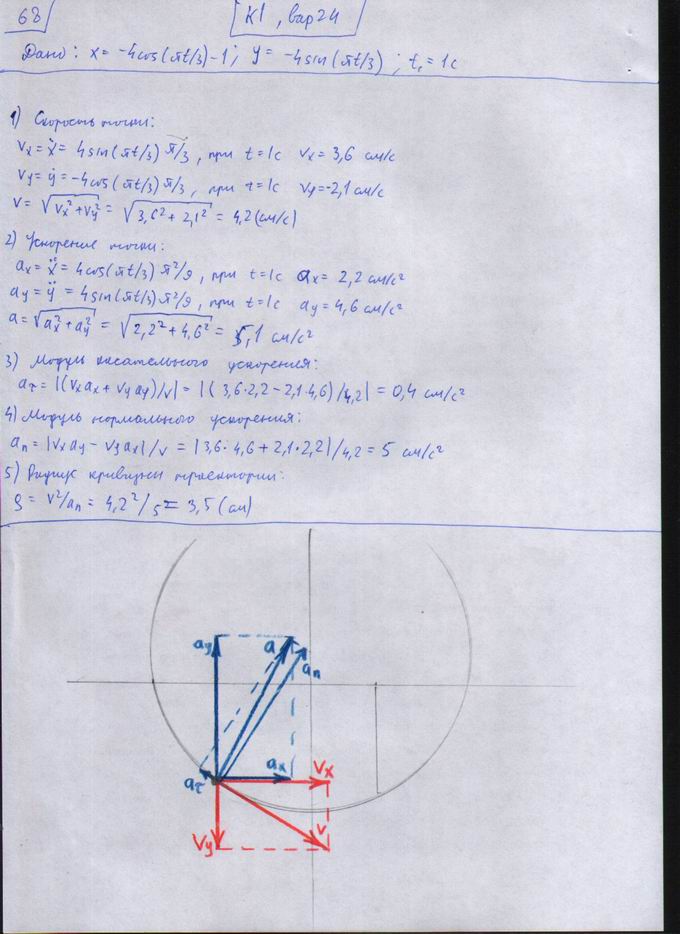 68
К1, вар 24
Дано: x = -4cos(πt/3)-1; y = -4sin(πt/3); t₁ = 1c
1) Скорость точки:
Vx = ẋ = 4sin(πt/3) π/3, при t=1c Vx = 3,6 см/с
Vy = ẏ = -4cos(πt/3) π/3, при t=1c Vy = -2,1 см/с
V = √(Vx²+Vy²) = √(3,6²+2,1²) = 4,2 (см/с)
2) Ускорение точки:
ax = ẍ = 4cos(πt/3) π²/9, при t=1c ax = 2,2 см/с²
ay = ÿ = 4sin(πt/3) π²/9, при t=1c ay = 4,6 см/с²
a = √(ax²+ay²) = √(2,2²+4,6²) = 5,1 см/с²
3) Модуль касательного ускорения:
aτ = |(Vx ax + Vy ay)/V| = |(3,6·2,2 - 2,1·4,6)/4,2| = 0,4 см/с²
4) Модуль нормального ускорения:
an = |Vx ay - Vy ax|/V = |3,6·4,6 + 2,1·2,2|/4,2 = 5 см/с²
5) Радиус кривизны траектории:
ρ = V²/an = 4,2²/5 = 3,5 (см)
ay
a
an
ax
Vx
aτ
V
Vy